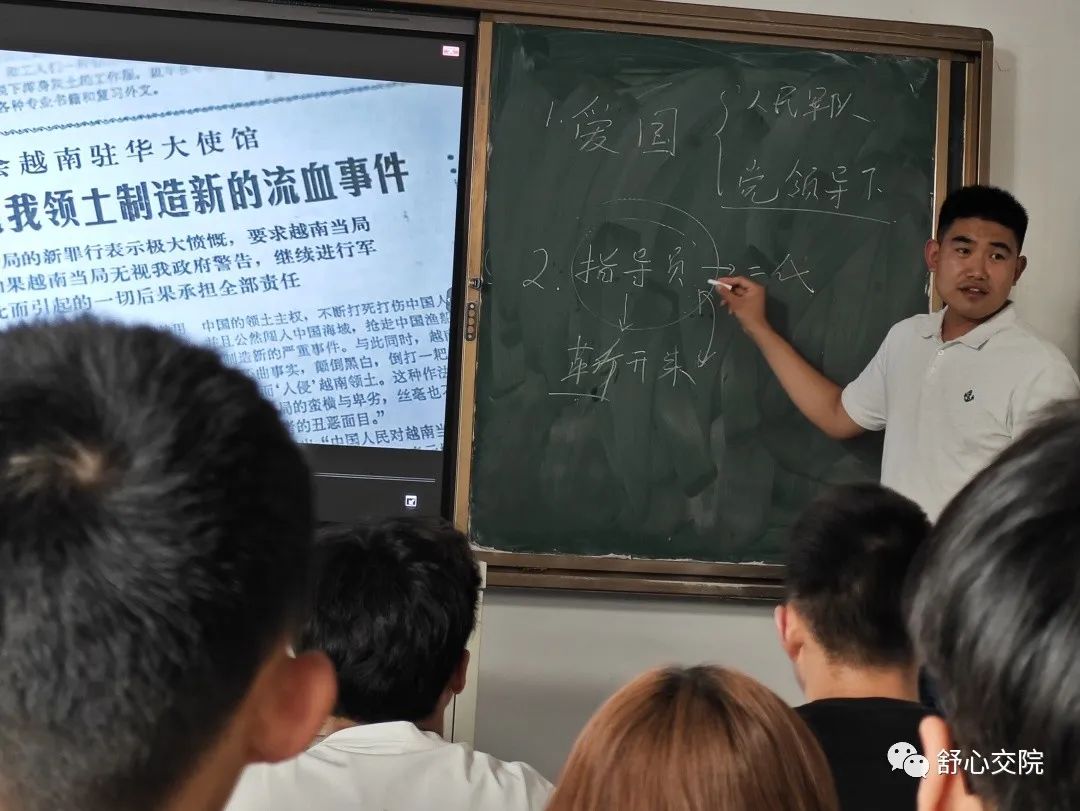 和工人们一
下浑身泥土的工作服
各种专业书籍和复习外文。
会越南驻华大使馆
我领土制造新的流血事件
局的新罪行表示极大愤慨，要求越南当局
果越南当局无视我政府警告，继续进行军
而引起的一切后果承担全部责任
中国的领土主权、不断打死打伤中国人
并且公然闯入中国海域，抢走中国渔船
制造新的严重事件。与此同时，越南
曲事实，颠倒黑白，倒打一把
“入侵”越南领土。这种作法
局的蛮横与卑劣，丝毫也
的丑恶面目。”
“中国人民对越南当
1. 爱国
人民军队
党领导下
2. 指导员 → 二代
开来
舒心交院